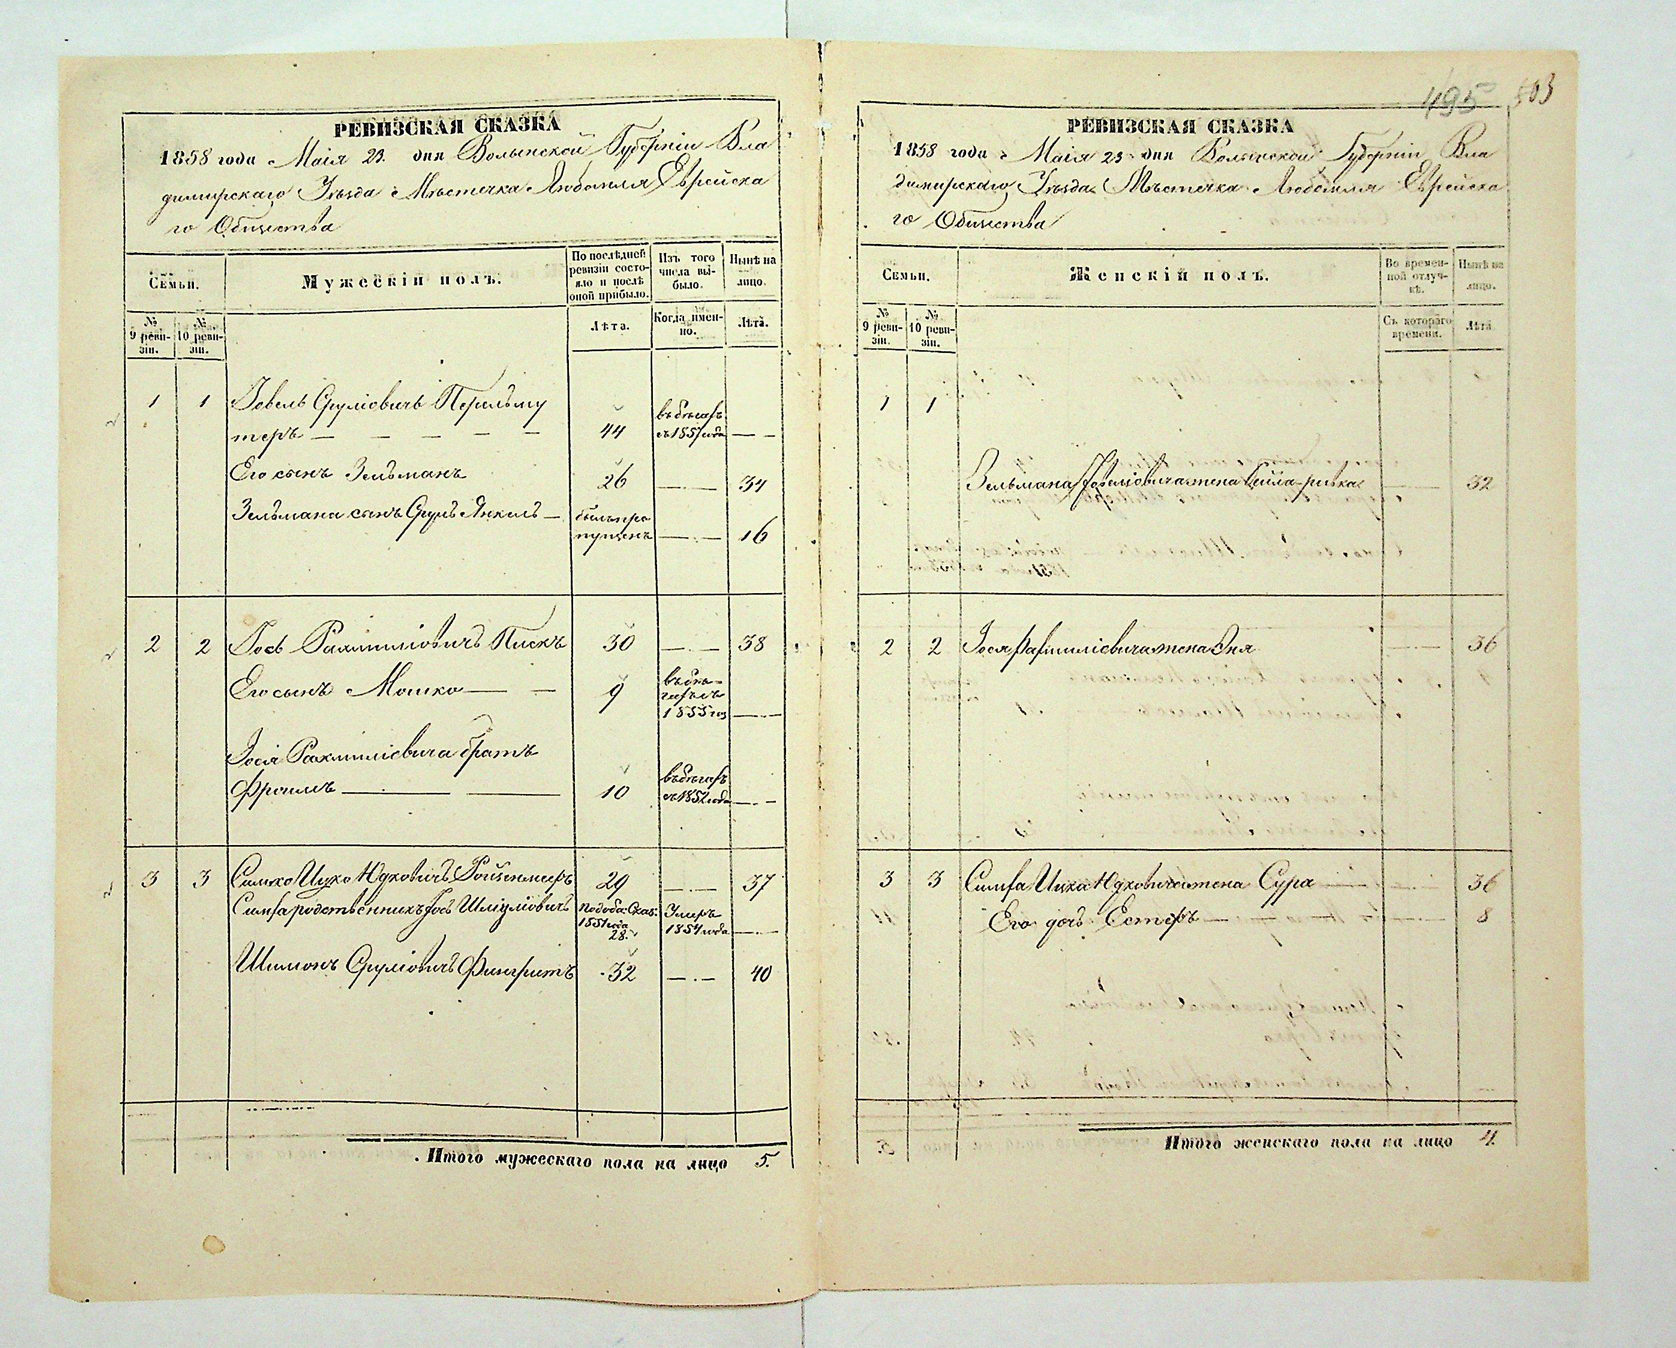 495 503
РЕВИЗСКАЯ СКАЗКА
1858 года Маія 23 дня Волынской Губерніи Вла
димирскаго Уѣзда Мѣстечка Любомля Еврейска
го Общества
Семьи.
Мужескій полъ.
По послѣдней ревизіи состояло и послѣ оной прибыло.
Изъ того числа выбыло.
Нынѣ на лицо.
№ 9 ревизіи.
№ 10 ревизіи.
Лѣта.
Когда именно.
Лѣта.
1 1 Іовель Сруліовичъ Перельму
теръ — 44 въ бѣгахъ съ 1857 года —
Его сынъ Зельманъ 26 — 34
Зельмана сынъ Сруль Янкель — былъ пропущенъ — 16
2 2 Іось Рахмиліовичъ Пискъ 30 — 38
Его сынъ Мошко — 9 въ бѣгахъ съ 1855 го —
Іося Рахмиліовича братъ
Фроимъ — 10 въ бѣгахъ съ 1852 года —
3 3 Симха Ицко Юдковичъ Ройзенмеръ 29 — 37
Симха родственникъ Іось Шміуліовичъ По доба: Сказ: 1851 года 28. Умеръ 1854 года —
Шимонъ Сруліовичъ Фингрутъ 32 — 40
Итого мужескаго пола на лицо 5.
РЕВИЗСКАЯ СКАЗКА
1858 года Маія 23 дня Волынской Губерніи Вла
димирскаго Уѣзда Мѣстечка Любомля Еврейска
го Общества
Семьи.
Женскій полъ.
Во временной отлучкѣ.
Нынѣ на лицо.
№ 9 ревизіи.
№ 10 ревизіи.
Съ котораго времени.
Лѣта.
1 1
Зельмана Іовеліовича жена — 32
2 2 Іося Рахмиліевича жена Эня — 36
3 3 Симха Ицка Юдковича жена Сура — 36
Его дочь Естеръ — 8
Итого женскаго пола на лицо 4.